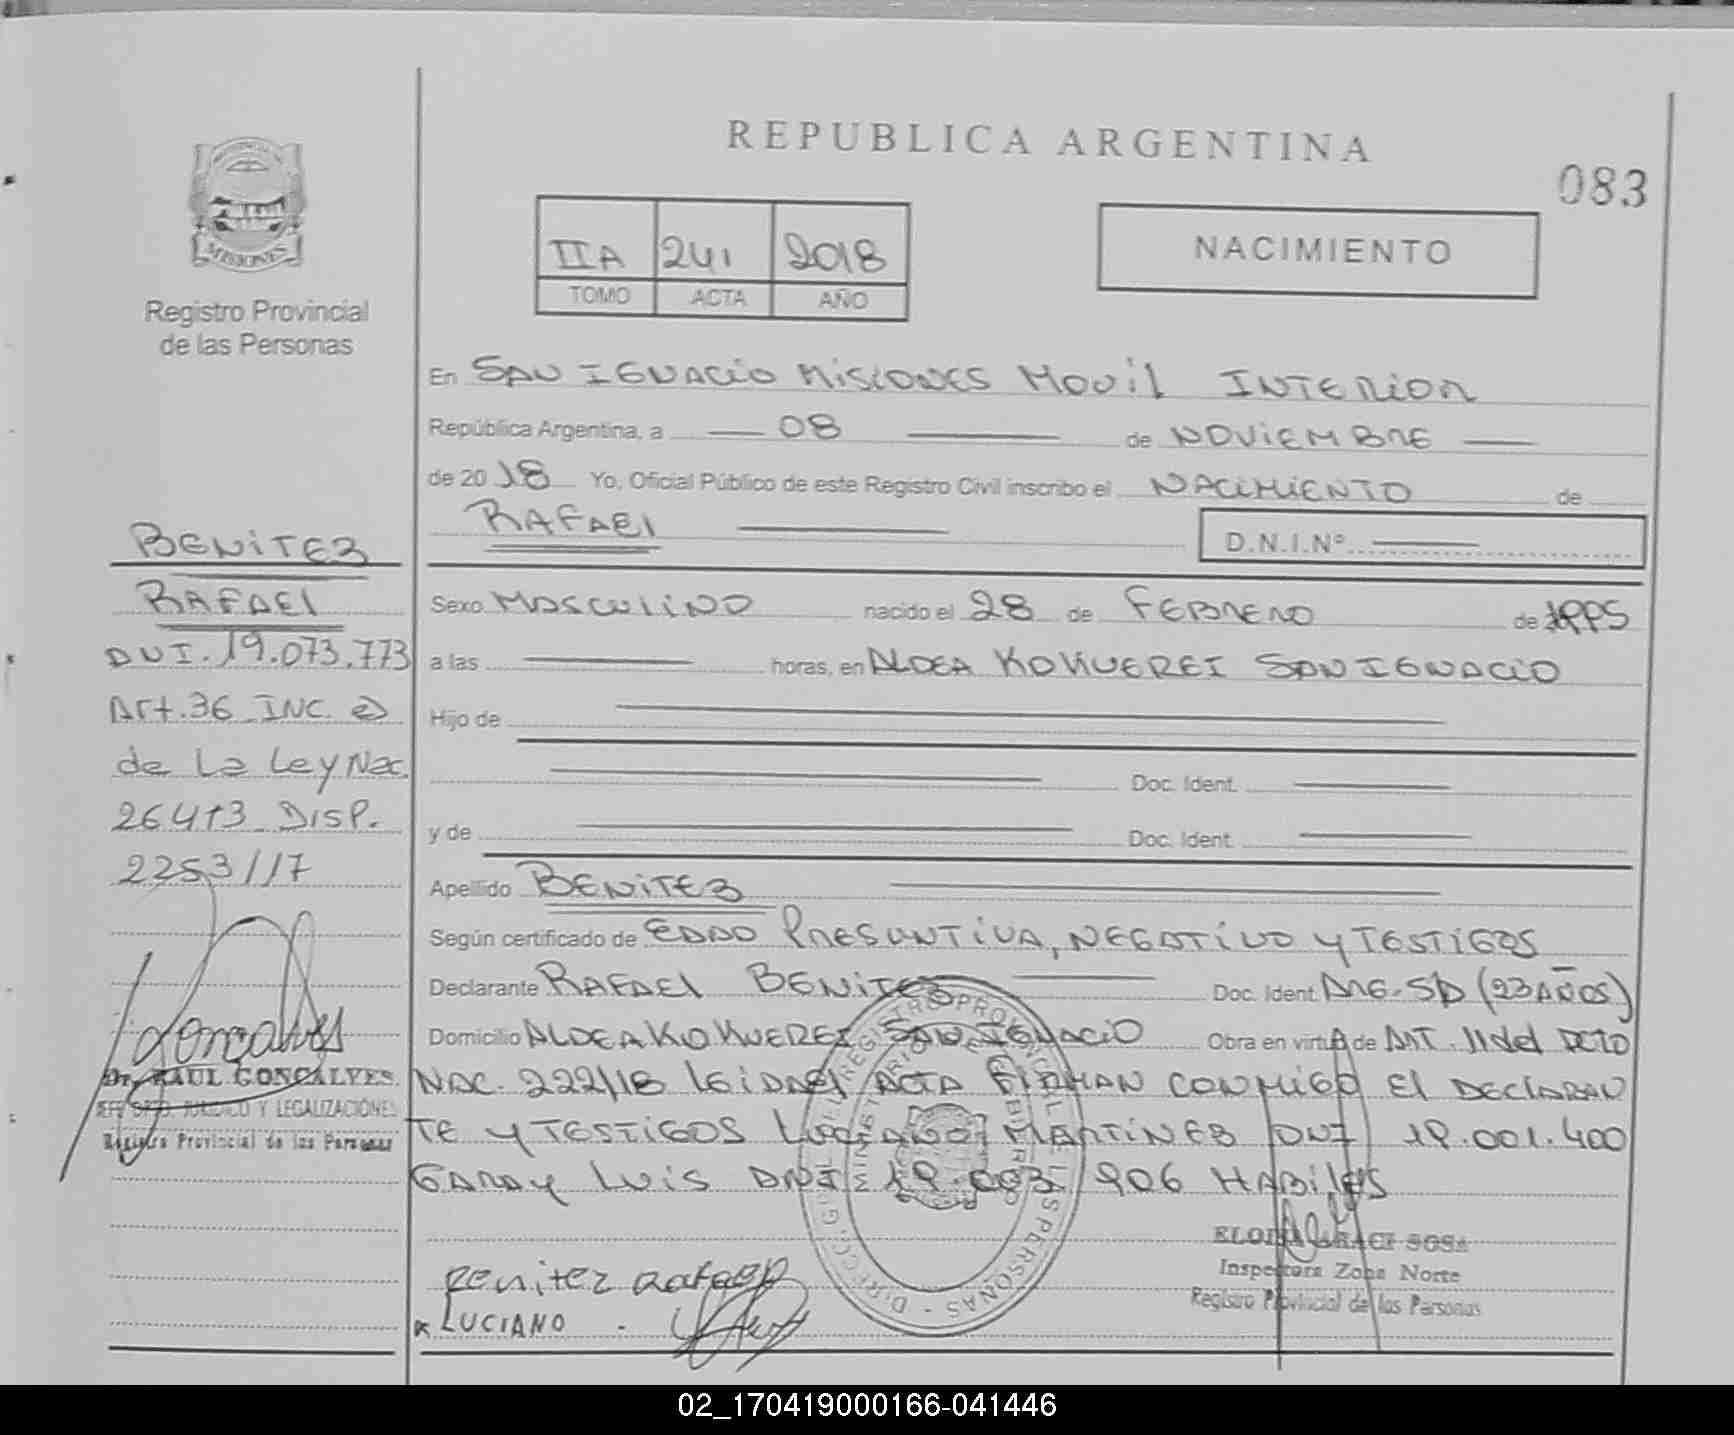 REPUBLICA ARGENTINA
083
MISIONES
Registro Provincial
de las Personas
IIA 241 2018
TOMO ACTA AÑO
NACIMIENTO
En SAN IGNACIO MISIONES MOVIL INTERIOR
República Argentina, a 08 de NOVIEMBRE
de 2018 Yo, Oficial Público de este Registro Civil inscribo el NACIMIENTO de
RAFAEL
D.N.I.Nº
BENITEZ
RAFAEL
DNI. 19.073.773
Art. 36 INC. e)
de La Ley Nac.
26413 DISP.
2253/17
Goncalves
Dr. RAUL GONCALVES
JEFE DPTO. JURIDICO Y LEGALIZACIONES
Registro Provincial de las Personas
Sexo MASCULINO nacido el 28 de FEBRERO de 1995
a las horas, en ALDEA KOKUEREI SAN IGNACIO
Hijo de
Doc. Ident.
y de Doc. Ident.
Apellido BENITEZ
Según certificado de EDAD PRESUNTIVA, NEGATIVO Y TESTIGOS
Declarante RAFAEL BENITEZ Doc. Ident. ARG-SD (23 AÑOS)
Domicilio ALDEA KOKUEREI SAN IGNACIO Obra en virtud de ART. 11 del DCTO
NAC. 222/18 LEIDA el ACTA FIRMAN CONMIGO El DECLARAN
TE Y TESTIGOS LUCIANO MARTINEZ DNI 19.001.400
GARAY LUIS DNI 19.003.906 HABILES
Benitez Rafael
LUCIANO
SOSA
Inspectora Zona Norte
Registro Provincial de las Personas
02_170419000166-041446